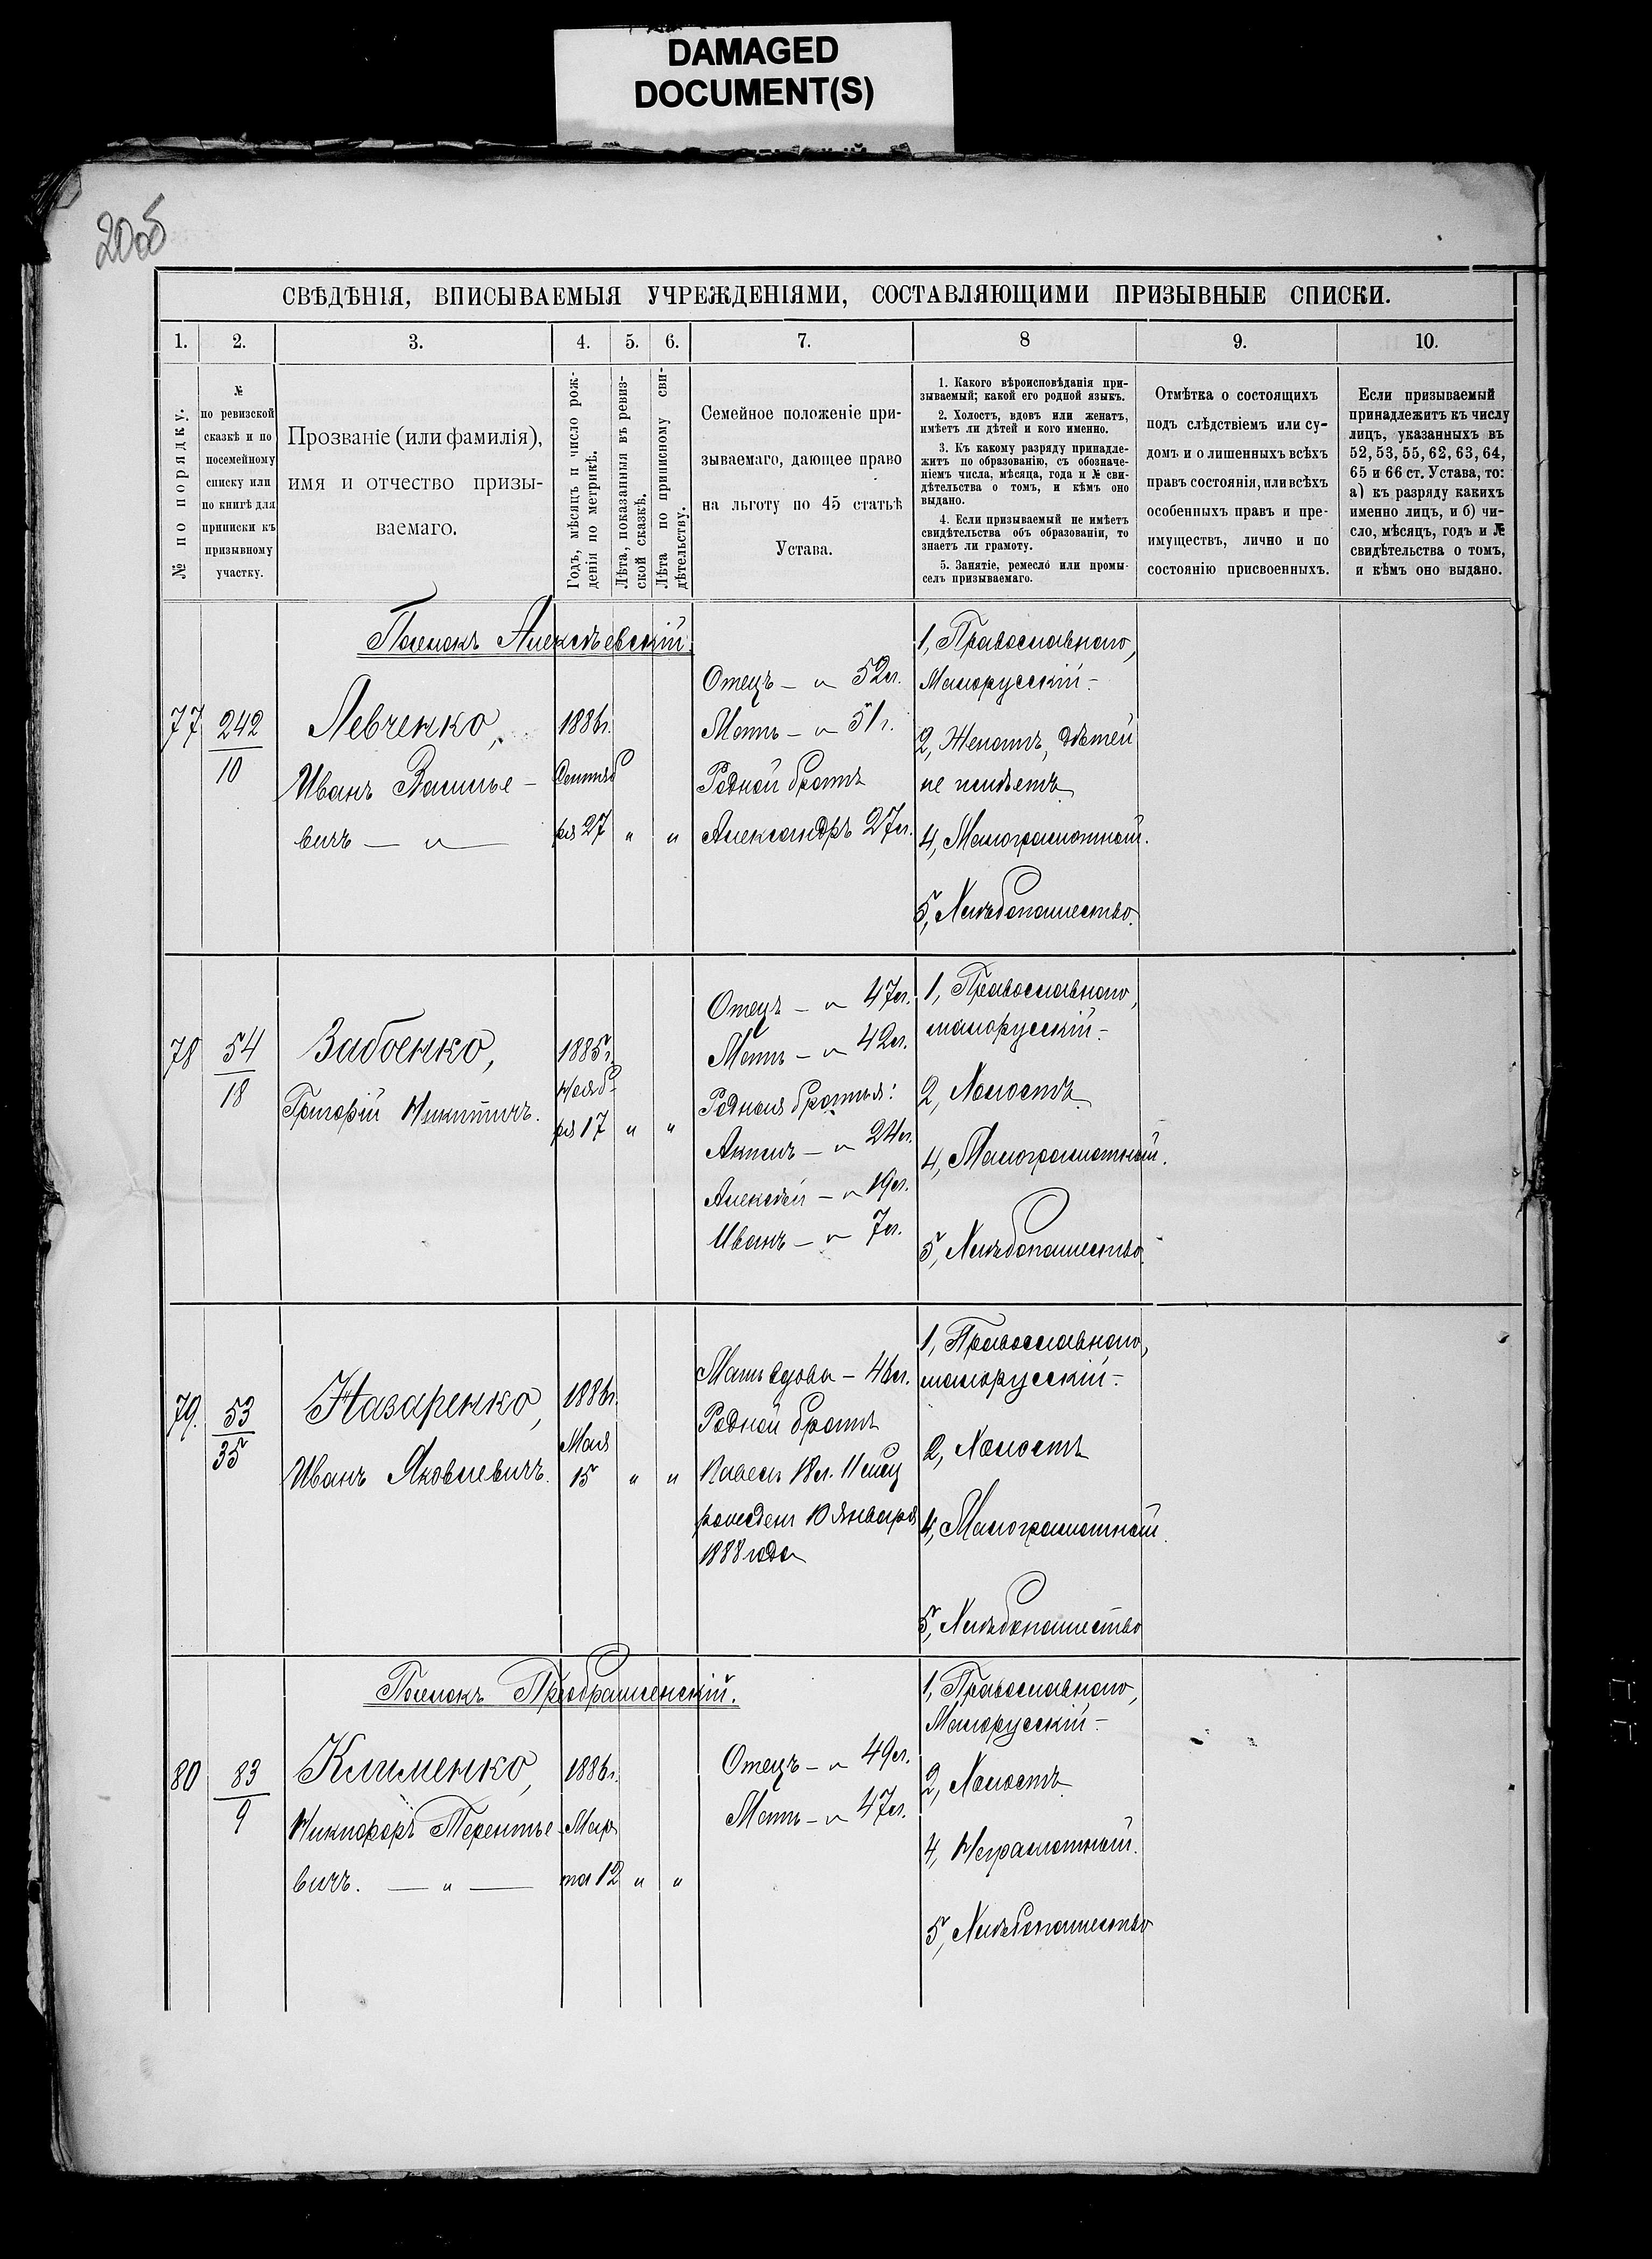 DAMAGED
DOCUMENT(S)
20об
СВѢДѢНІЯ, ВПИСЫВАЕМЫЯ УЧРЕЖДЕНІЯМИ, СОСТАВЛЯЮЩИМИ ПРИЗЫВНЫЕ СПИСКИ.
1. 2. 3. 4. 5. 6. 7. 8 9. 10.
№ по порядку.
№
по ревизской
сказкѣ и по
посемейному
списку или
по книгѣ для
приписки къ
призывному
участку.
Прозваніе (или фамилія),
имя и отчество призы-
ваемаго.
Годъ, мѣсяцъ и число рож-
денія по метрикѣ.
Лѣта, показанныя въ ревиз-
ской сказкѣ.
Лѣта по приписному сви-
дѣтельству.
Семейное положеніе при-
зываемаго, дающее право
на льготу по 45 статьѣ
Устава.
1. Какого вѣроисповѣданія при-
зываемый; какой его родной языкъ.
2. Холостъ, вдовъ или женатъ,
имѣетъ ли дѣтей и кого именно.
3. Къ какому разряду принадле-
житъ по образованію, съ обозначе-
ніемъ числа, мѣсяца, года и № сви-
дѣтельства о томъ, и кѣмъ оно
выдано.
4. Если призываемый не имѣетъ
свидѣтельства объ образованіи, то
знаетъ ли грамоту.
5. Занятіе, ремесло или промы-
селъ призываемаго.
Отмѣтка о состоящихъ
подъ слѣдствіемъ или су-
домъ и о лишенныхъ всѣхъ
правъ состоянія, или всѣхъ
особенныхъ правъ и пре-
имуществъ, лично и по
состоянію присвоенныхъ.
Если призываемый
принадлежитъ къ числу
лицъ, указанныхъ въ
52, 53, 55, 62, 63, 64,
65 и 66 ст. Устава, то:
а) къ разряду какихъ
именно лицъ, и б) чи-
сло, мѣсяцъ, годъ и №
свидѣтельства о томъ,
и кѣмъ оно выдано.
Поселокъ Алексѣевскій.
77
242
10
Левченко,
Иванъ Василье-
вичъ — „ —
1886г.
Сентяб
ря 27
„ „
Отецъ — „ 52л.
Мать — „ 51г.
Родной братъ
Александръ 27л.
1, Православнаго,
Малорусскій-
2, Женатъ, дѣтей
не имѣетъ
4, Малограмотный.
5, Хлѣбопашество.
78
54
18
Забоенко,
Григорій Никитичъ.
1885г.
Нояб-
ря 17
„ „
Отецъ — „ 47л.
Мать — „ 42л.
Родныя братья:
Акимъ — „ 24л.
Алексѣй — „ 19л.
Иванъ — „ 7л.
1, Православнаго,
малорусскій-
2, Холостъ
4, Малограмотный.
5, Хлѣбопашество.
79.
53
35
Назаренко,
Иванъ Яковлевичъ.
1886г.
Мая
15
„ „
Мать вдова — 46л.
Родной братъ
Павелъ 18л. 11 мѣс
рожденъ 10 Января
1888 года
1, Православнаго,
малорусскій-
2, Холостъ
4, Малограмотный.
5, Хлѣбопашество
Поселокъ Преображенскій.
80
83
9
Клименко,
Никифоръ Терентье-
вичъ. — „ —
1886г.
Мар
та 12
„ „
Отецъ — „ 49л.
Мать — „ 47л.
1, Православнаго,
Малорусскій-
2, Холостъ
4, Неграмотный.
5, Хлѣбопашество